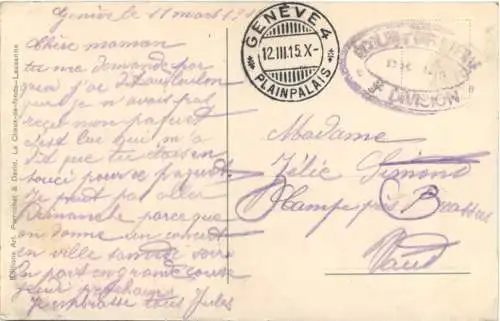 Genève le 11 mars 191
Chère maman
tu me demande par
quoi j'ai
que je n'avais pas
reçu mon paquet
c'est lui qui m'a
dit que tu étais en
souci pour ce paquet.
Je peut pas aller
Demanche parce que
on donne un concert
en ville samedi soir
on part en grande course
jeudi prochain
Jembrasse tous Jules
GENÈVE 4
12.III.15.X-
PLAINPALAIS
DIVISION
Madame
Zélie Simond
Champ près Brassus
Vaud
Editions Art. Perrochet & David, La Chaux-de-fonds-Lausanne